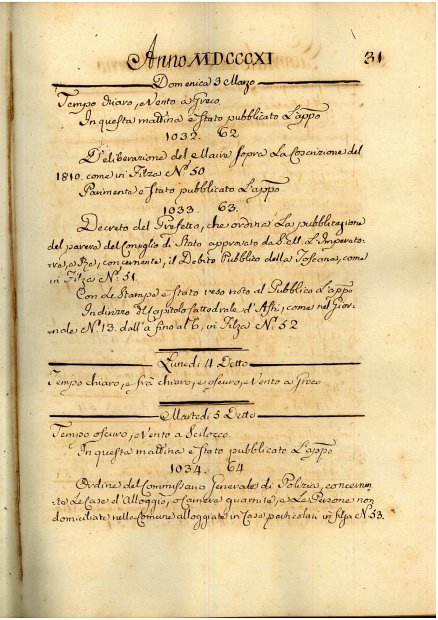 Anno MDCCCXI 31
Domenica 3 Marzo
Tempo chiaro, e Vento a Greco.
In questa mattina è stato pubblicato L'appo
1032. 62
Deliberazione del Maire sopra La Coscrizione del
1810. come in Filza N.º 50
Parimente è stato pubblicato L'appo
1033. 63.
Decreto del Prefetto, che ordina La pubblicazione
del parere del Consiglio di Stato approvato da S. M. L'Imperato-
re, e Re, concernente, il Debito Pubblico della Toscana, come
in Filza N.º 51.
Con le Stampe è stato reso noto al Pubblico L'appo
Indirizzo del Capitolo Cattedrale d'Asti, come nel Gior-
nale N.º 13. dall' a fino al 6, in Filza N.º 52
Lunedì 4 Detto
Tempo chiaro, e frà chiaro, e oscuro, e Vento a Greco
Martedì 5 Detto
Tempo oscuro, e Vento a Scilocco.
In questa mattina è stato pubblicato L'appo
1034. 64
Ordine del Commissario Generale di Polizia, concernen-
te Le Case d'Alloggio, o Camere guarnite, e Le Persone non
domiciliate nella Comune alloggiate in Case particolari in filza N.º 53.